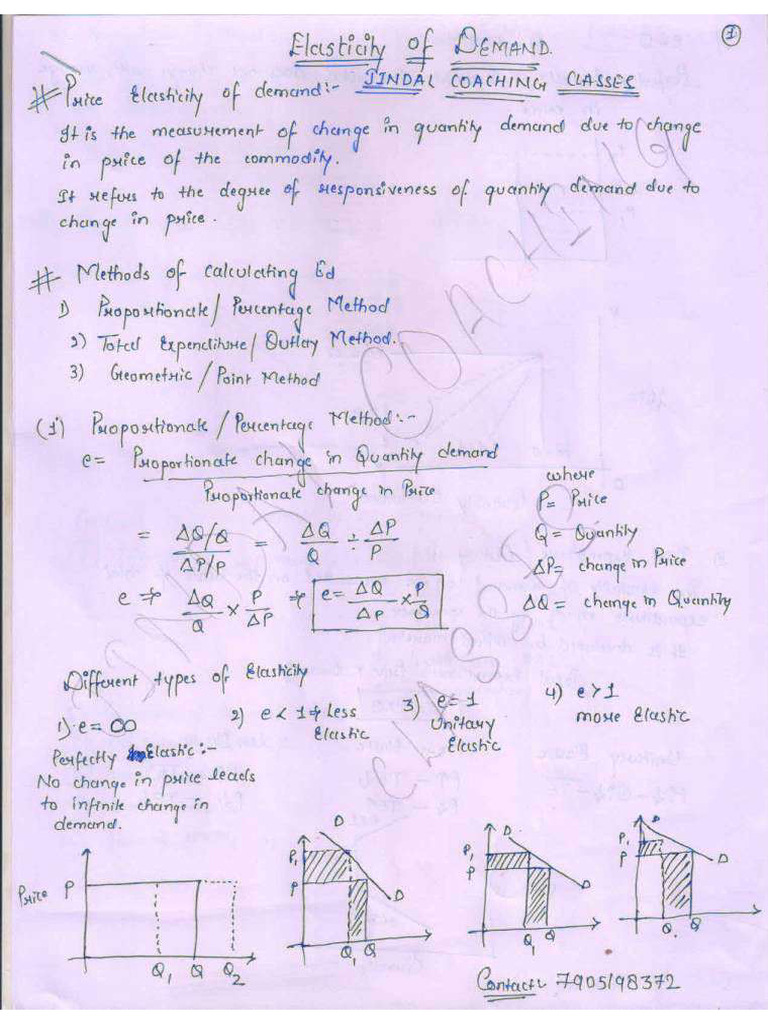 1
Elasticity of DEMAND.
JINDAL COACHING CLASSES
# Price Elasticity of demand:-
It is the measurement of change in quantity demand due to change
in price of the commodity.
It refers to the degree of responsiveness of quantity demand due to
change in price.
# Methods of calculating Ed
1) Proportionate / Percentage Method
2) Total Expenditure / Outlay Method.
3) Geometric / Point Method
(1) Proportionate / Percentage Method:-
e = Proportionate change in Quantity demand
Proportionate change in Price
where
P = Price
Q = Quantity
ΔP = change in Price
ΔQ = change in Quantity
= ΔQ/Q / ΔP/P = ΔQ/Q ÷ ΔP/P
e ⇒ ΔQ/Q × P/ΔP ⇒ e = ΔQ/ΔP × P/Q
Different types of Elasticity
1) e = ∞
Perfectly Elastic:-
No change in price leads
to infinite change in
demand.
2) e < 1 ⇒ Less
Elastic
3) e = 1
Unitary
Elastic
4) e > 1
more Elastic
Price P Q1 Q Q2
D P1 P D Q1 Q
D P1 P D Q1 Q
D P1 P D Q. Q
Contact:- 7905198372
JINDAL COACHING CLASSES